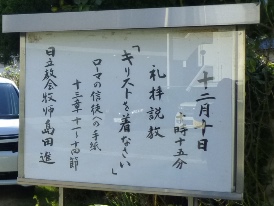 十二月十日
十時十五分
礼拝説教
「キリストを着なさい」
ローマの信徒への手紙
十三章十一～十四節
日立教会牧師島田進